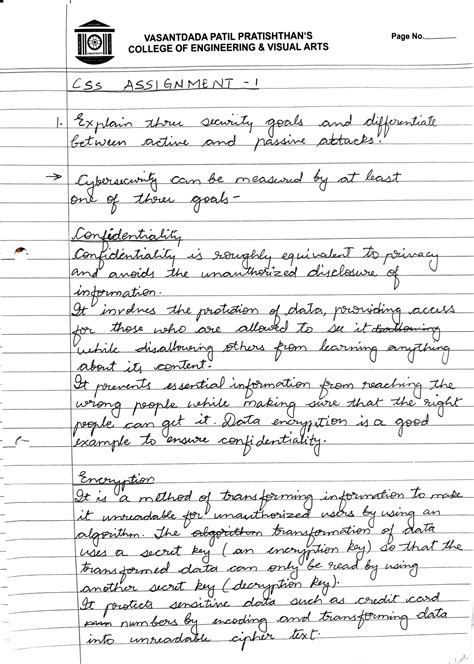 VASANTDADA PATIL PRATISHTHAN'S
COLLEGE OF ENGINEERING & VISUAL ARTS
Page No.
CSS ASSIGNMENT - 1
1. Explain three security goals and differentiate
between active and passive attacks.
→ Cybersecurity can be measured by at least
one of three goals -
Confidentiality
Confidentiality is roughly equivalent to privacy
and avoids the unauthorized disclosure of
information.
It involves the protection of data, providing access
for those who are allowed to see it
while disallowing others from learning anything
about its content.
It prevents essential information from reaching the
wrong people while making sure that the right
people can get it. Data encryption is a good
example to ensure confidentiality.
Encryption
It is a method of transforming information to make
it unreadable for unauthorized users by using an
algorithm. The algorithm transformation of data
uses a secret key (an encryption key) so that the
transformed data can only be read by using
another secret key (decryption key).
It protects sensitive data such as credit card
numbers by encoding and transforming data
into unreadable cipher text.